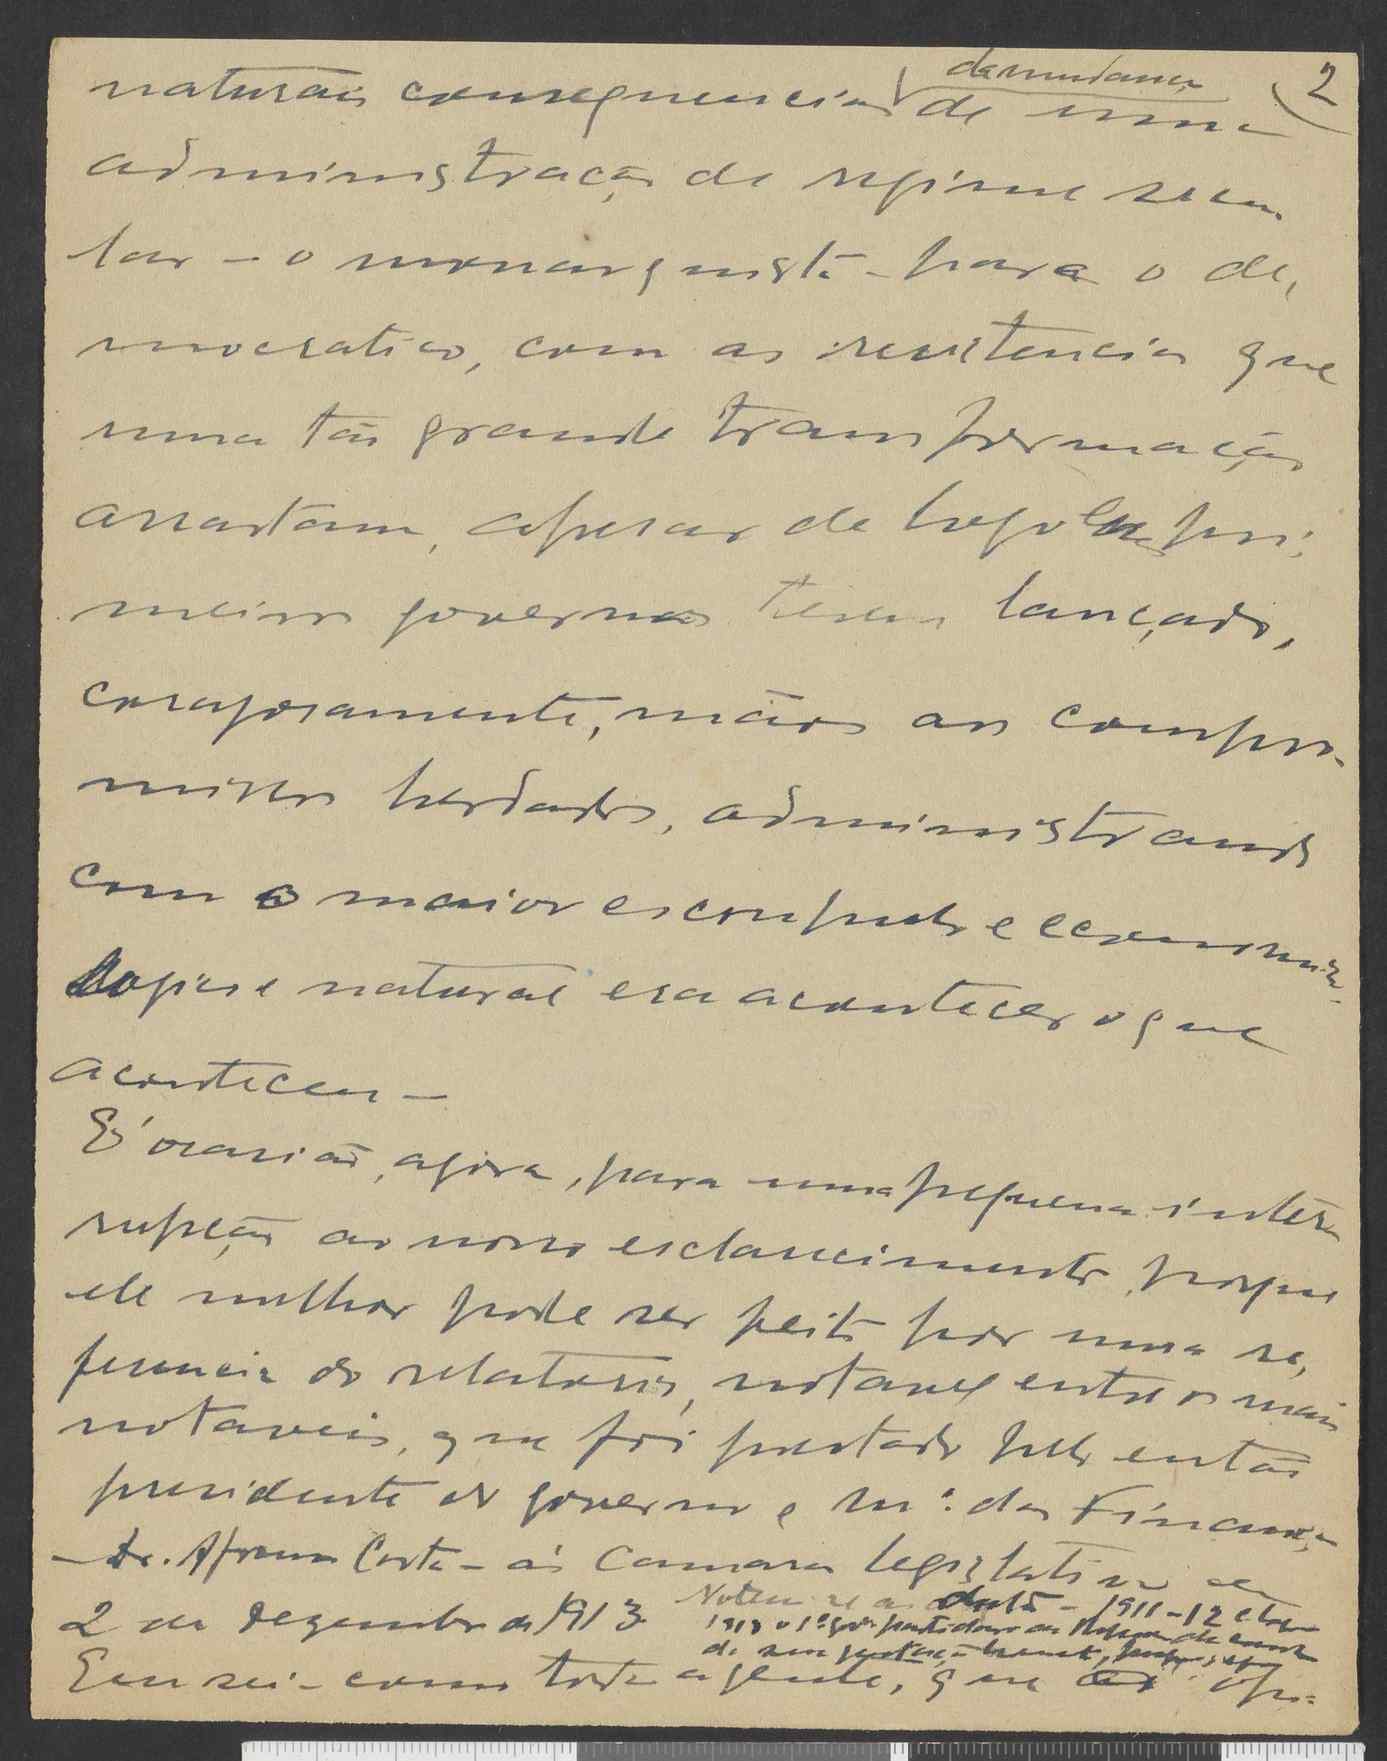 2
da mudança
naturais consequencias de uma
administração de regime secu-
lar - o monarquista - para o de-
mocratico, com as resistencias que
uma tão grande transformação
arrastam, apesar de logo os pri-
meiros governos terem lançado,
corajosamente, mãos aos compro-
missos herdados, administrando
com o maior escrupulo e economia.
Logico e natural era acontecer o que
aconteceu -
É ocasião, agora, para uma pequena inter-
rupção ao nosso esclarecimento, porque
ele melhor pode ser feito por uma re-
ferencia do relatorio, notavel entre os mais
notaveis, que foi prestado pelo então
presidente do governo e m.º das Finanças
- Dr. Afonso Costa - ás Camaras legislativas de
2 de Dezembro de 1913
Notem-se as datas - 1911-12 e
1913 o 1º partidario da
de sua
Eu sei - como toda a gente, que